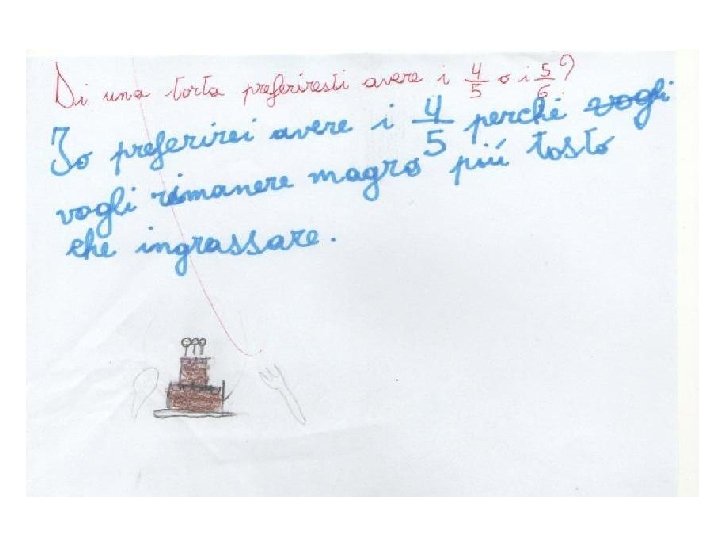 Di una torta preferiresti avere i 4/5 o i 5/6?
Io preferirei avere i 4/5 perché vogli
vogli rimanere magro più tosto
che ingrassare.